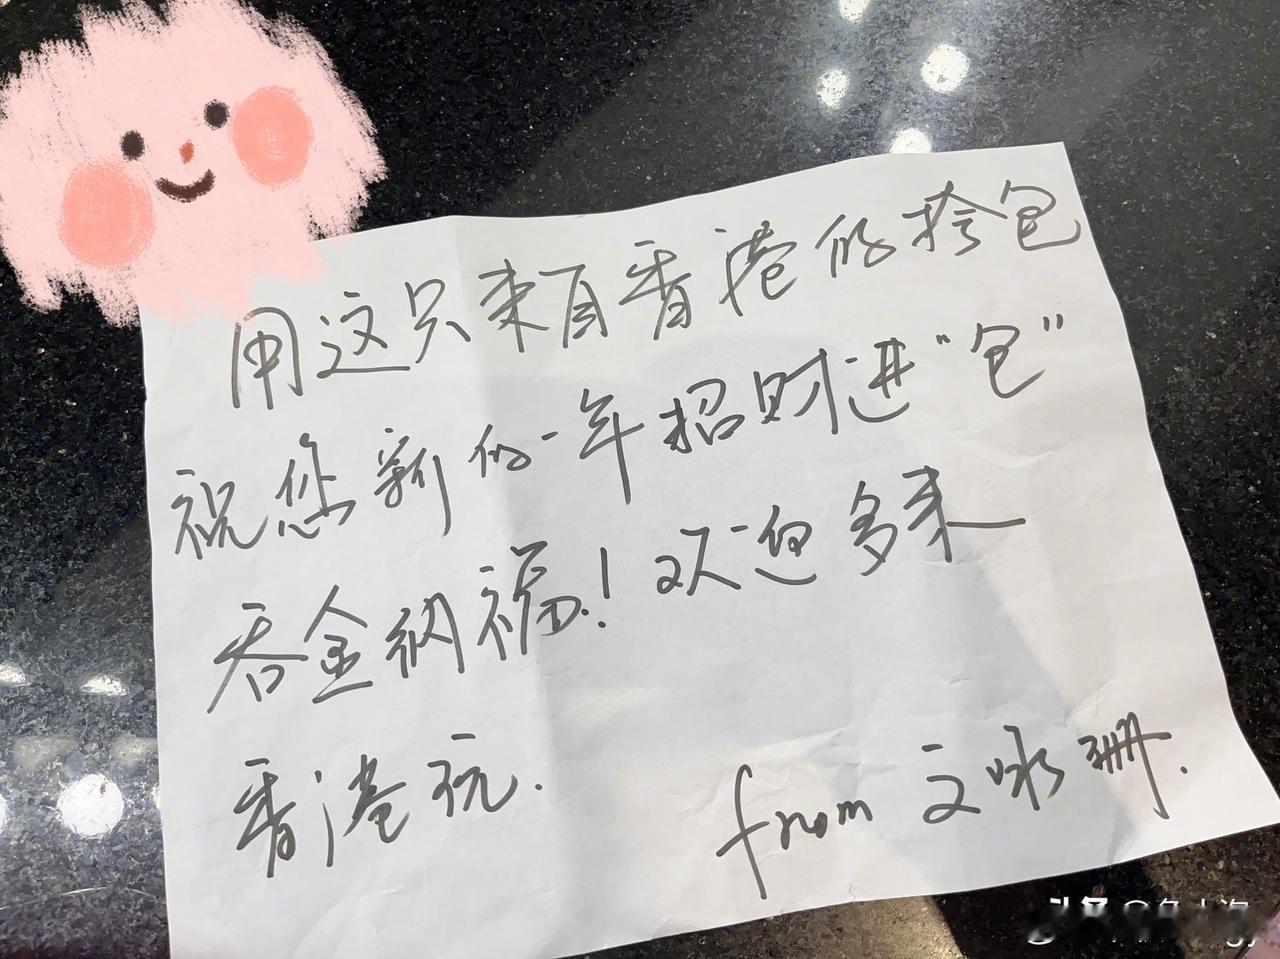 用这只来自香港的拎包
祝您新的一年招财进“包”
吞金纳福！欢迎多来
香港玩.
from 文咏珊.
头条